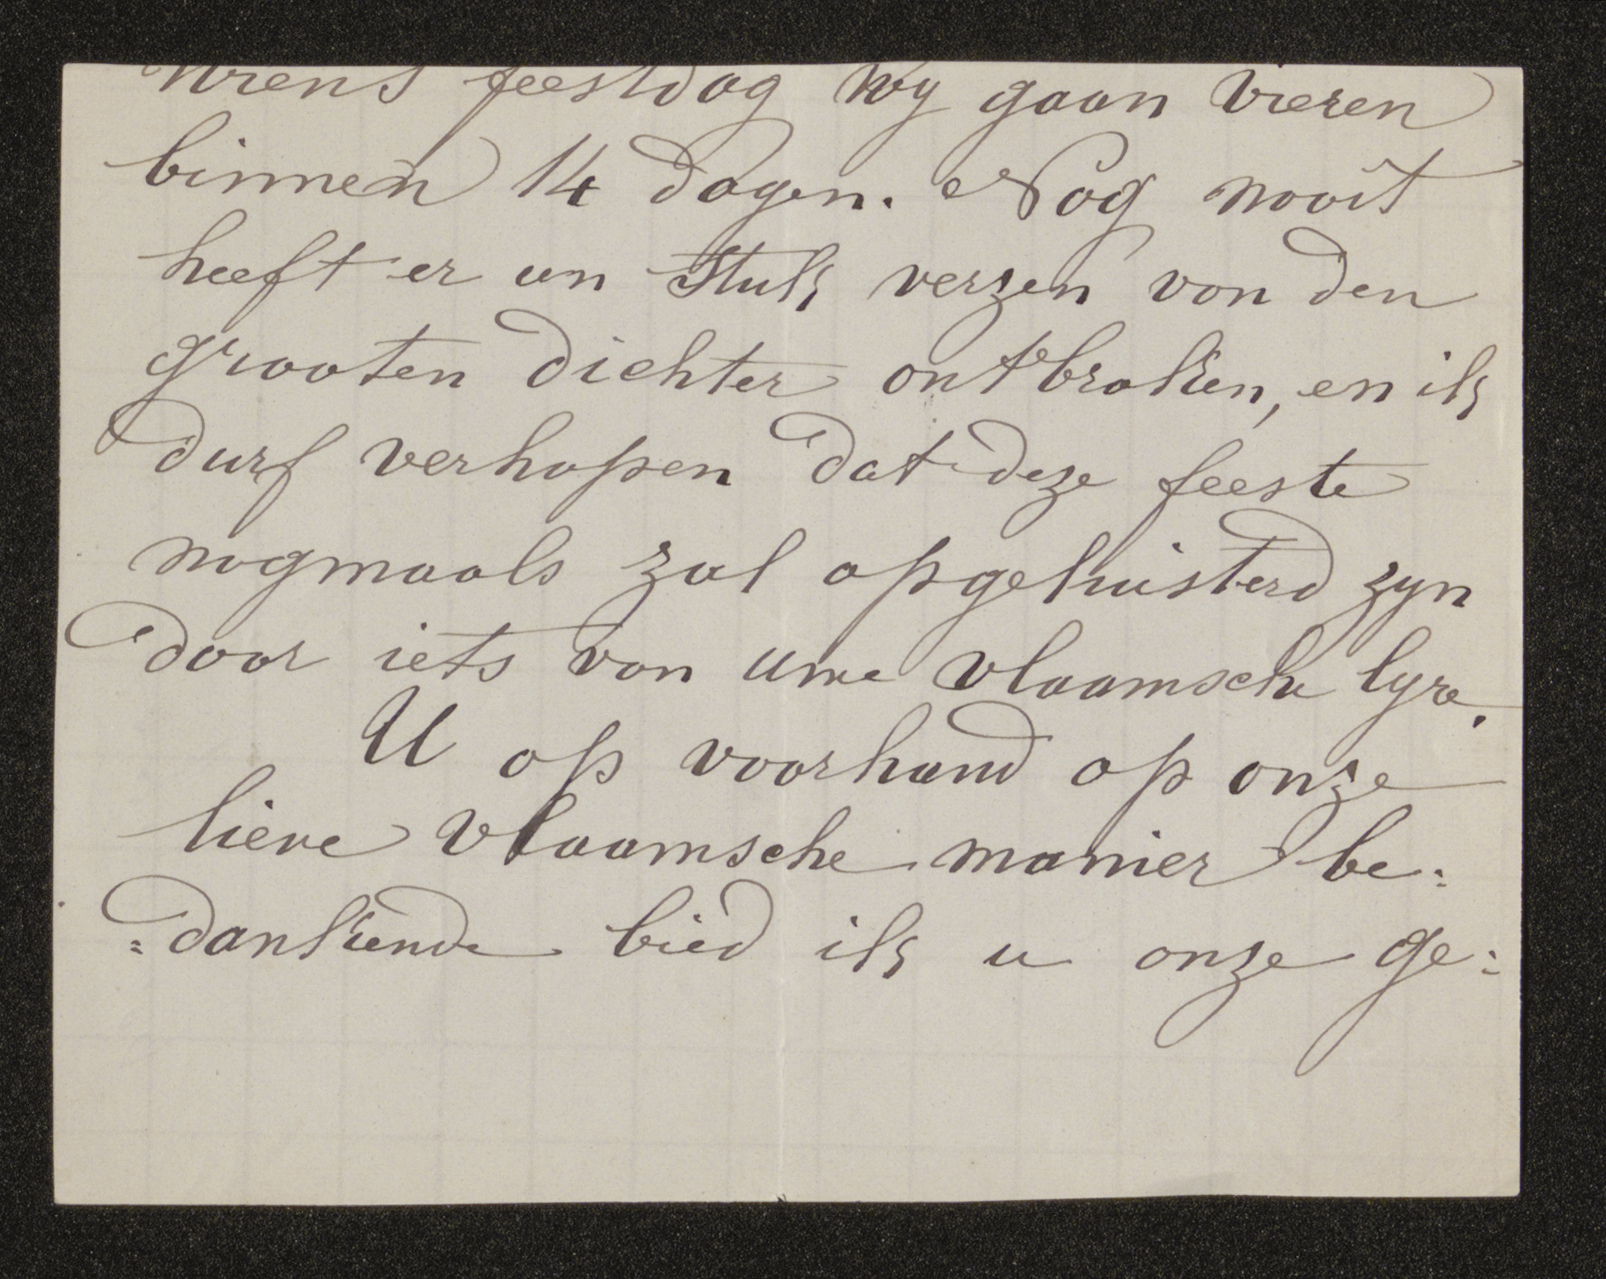 wiens feestdag wy gaan vieren
binnen 14 dagen. Nog nooit
heeft er een stuk verzen van den
grooten dichter ontbroken, en ik
durf verhopen dat deze feeste
nogmaals zal opgeluisterd zyn
door iets van uwe vlaamsche lyre.
U op voorhand op onze
lieve vlaamsche manier be:
:dankende bied ik u onze ge: